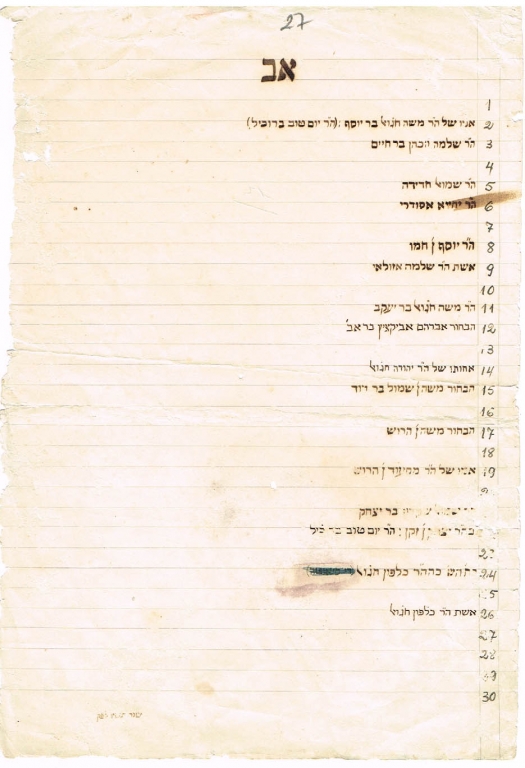 27
אב
1
2 אמו של הר משה חנוא בר יוסף : (הר יום טוב ברוכיל)
3 הר שלמה הכהן בר חיים
4
5 הר שמוא חדידה
6 הר יחייא אסודרי
7
8 הר יוסף ן חמו
9 אשת הר שלמה אזולאי
10
11 הר משה חנוא בר יעקב
12 הבחור אברהם אביקציץ בר אב'
13
14 אחותו של הר יהודה חנוא
15 הבחור משה ן שמול בר דוד
16
17 הבחור משה ן הרוש
18
19 אמו של הר ממיעוד ן הרוש
בר יצחק
ן זקן : הר יום טוב
23
24 כההר כלפין חנוא
25
26 אשת הר כלפון חנוא
27
28
29
30